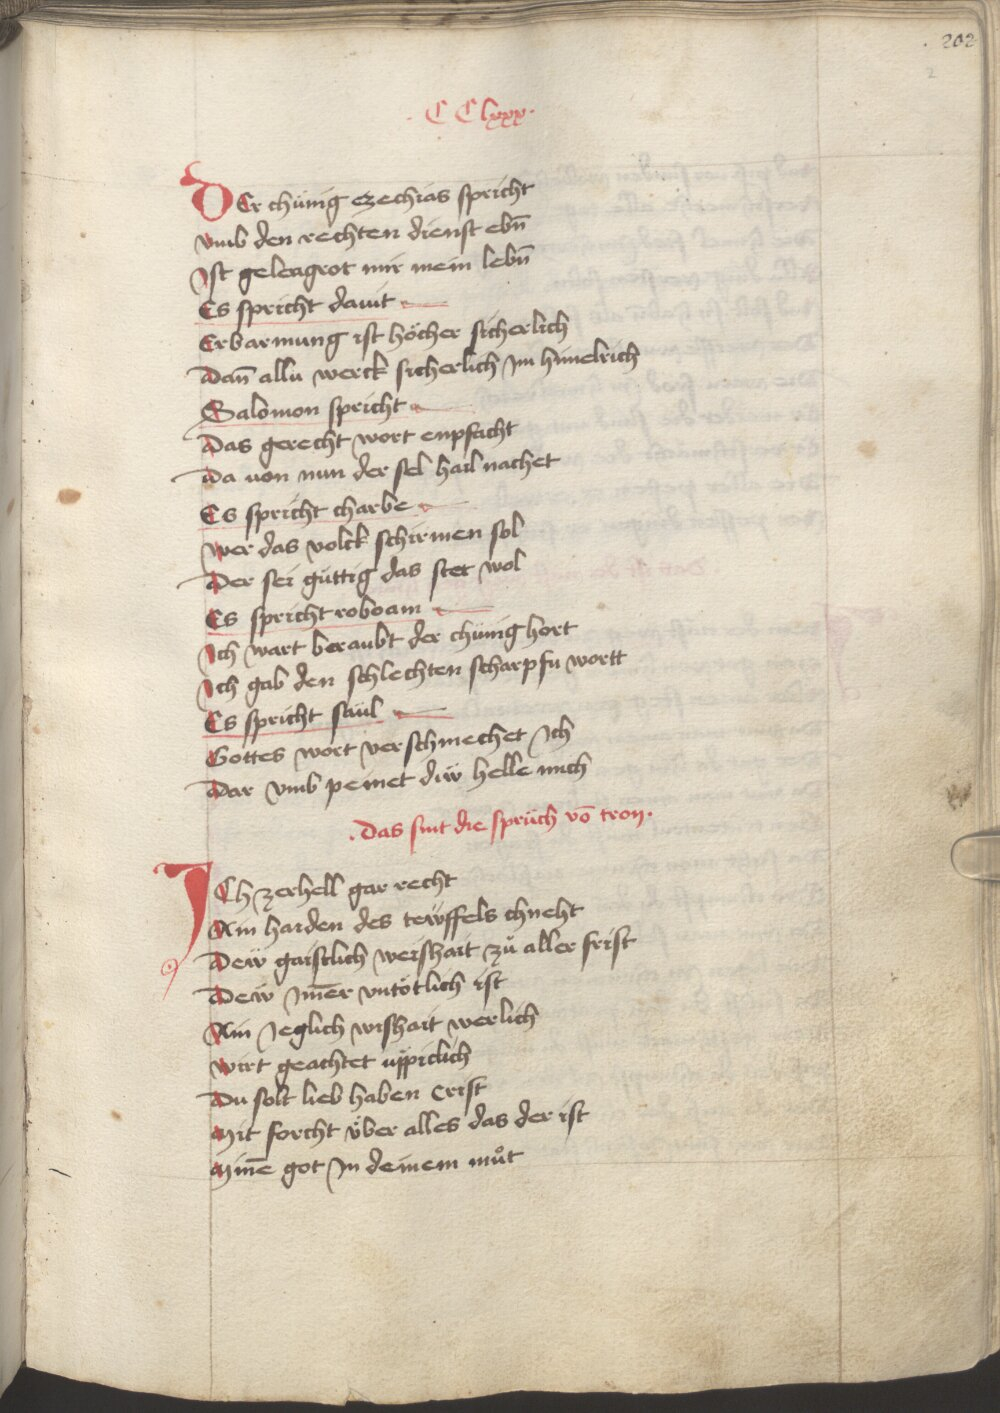 202
· C C lxxx ·
DEr chünig ezechias spricht
vmb den rechten dienst ebn̄
Ist gelengrot mir mein lebn̄
Es spricht dauit
Erbarmung ist höcher sicherlich
Dan̄ allu werck sicherlich Im himelrich
Salomon spricht
Das gerecht wort enpfacht
Da von nun der sel hail nachet
Es spricht charbe
wer das volck schirmen sol
Der sei güttig das stet wol
Es spricht roboam
Ich wart beraubt der chünig hort
Ich gab den schlechten scharpfu wortt
Es spricht saül
Gottes wort verschmechet Ich
Dar vmb peinet diw helle mich
· Das sint die sprüch vō tron ·
ICh zerhell gar recht
Ain harden des tewffels chneht
Dew gaistlich weishait zů aller frist
Dew Im̄er vntötlich ist
Ain Jeglich wishait werlich
wirt geachtet üppiclich
Du solt lieb haben Crist
Mit forcht über alles das der ist
Minē got In deinem můt